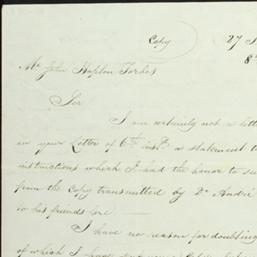 Copy
27
Mr. John Hopton Forbes
Sir
I am certainly not a little
in your Letter of 6th inst. a statement t
instructions which I had the honor to su
from the Copy transmitted by Dr. André
to his friends are
I have no reason for doubting
of which I have